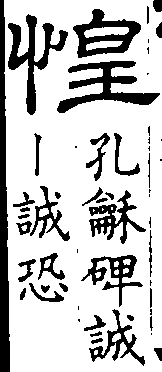 惶
孔龢碑誠
丨誠恐